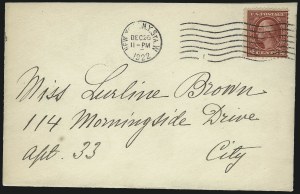 NEW YORK, N.Y. STA. W
DEC 26
11-PM
1922
U.S. POSTAGE
Miss Lurline Brown
114 Morningside Drive
apt. 33 City